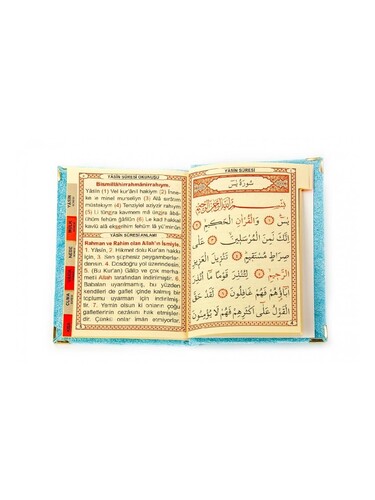 YÂSÎN SÛRESİ OKUNUŞU
Bismillâhirrahmânirrahıym.
Yâsîn (1) Vel kur'ânil hakîym (2) İnne-
ke le minel murselîyn (3) Alâ sırâtım
müstekıym (4) Tenzîylel azîyzir rahıym
(5) Li tünzira kavmem mâ ünzira âbâ-
ühüm fehüm ğâfilûn (6) Le kad hakkal
kavlü alâ ekserihim fehüm lâ yü'minûn
YÂSÎN SÛRESİ ANLAMI
Rahman ve Rahim olan Allah'ın İsmiyle,
1. Yâsîn, 2. Hikmet dolu Kur'an hakkı
için, 3. Sen şüphesiz peygamberden-
sin. 4. Dosdoğru yol üzerindesin.
5. (Bu Kur'an) Gâlip ve çok merha-
metli Allah tarafından indirilmiştir. 6.
Babaları uyarılmamış, bu yüzden
kendileri de gaflet içinde kalmış bir
toplumu uyarman için indirilmiş-
tir. 7. Yemin olsun ki onların çoğu
gafletlerinin cezasını hak etmişler-
dir. Çünkü onlar iman etmiyorlar.
YÂSÎN SÛRESİ
سُورَةُ يٰسٓ
بِسْمِ اللّٰهِ الرَّحْمٰنِ الرَّحِيمِ
يٰسٓ ۞ وَالْقُرْاٰنِ الْحَكِيمِ ۞
اِنَّكَ لَمِنَ الْمُرْسَلِينَ ۞ عَلٰى
صِرَاطٍ مُسْتَقِيمٍ ۞ تَنْزِيلَ الْعَزِيزِ
الرَّحِيمِ ۞ لِتُنْذِرَ قَوْمًا مَٓا اُنْذِرَ
اٰبَٓاؤُهُمْ فَهُمْ غَافِلُونَ ۞ لَقَدْ حَقَّ
الْقَوْلُ عَلٰٓى اَكْثَرِهِمْ فَهُمْ لَا يُؤْمِنُونَ